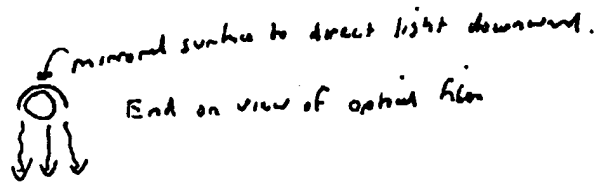 mirrored surface to direct light downward.
End on view of optical fiber